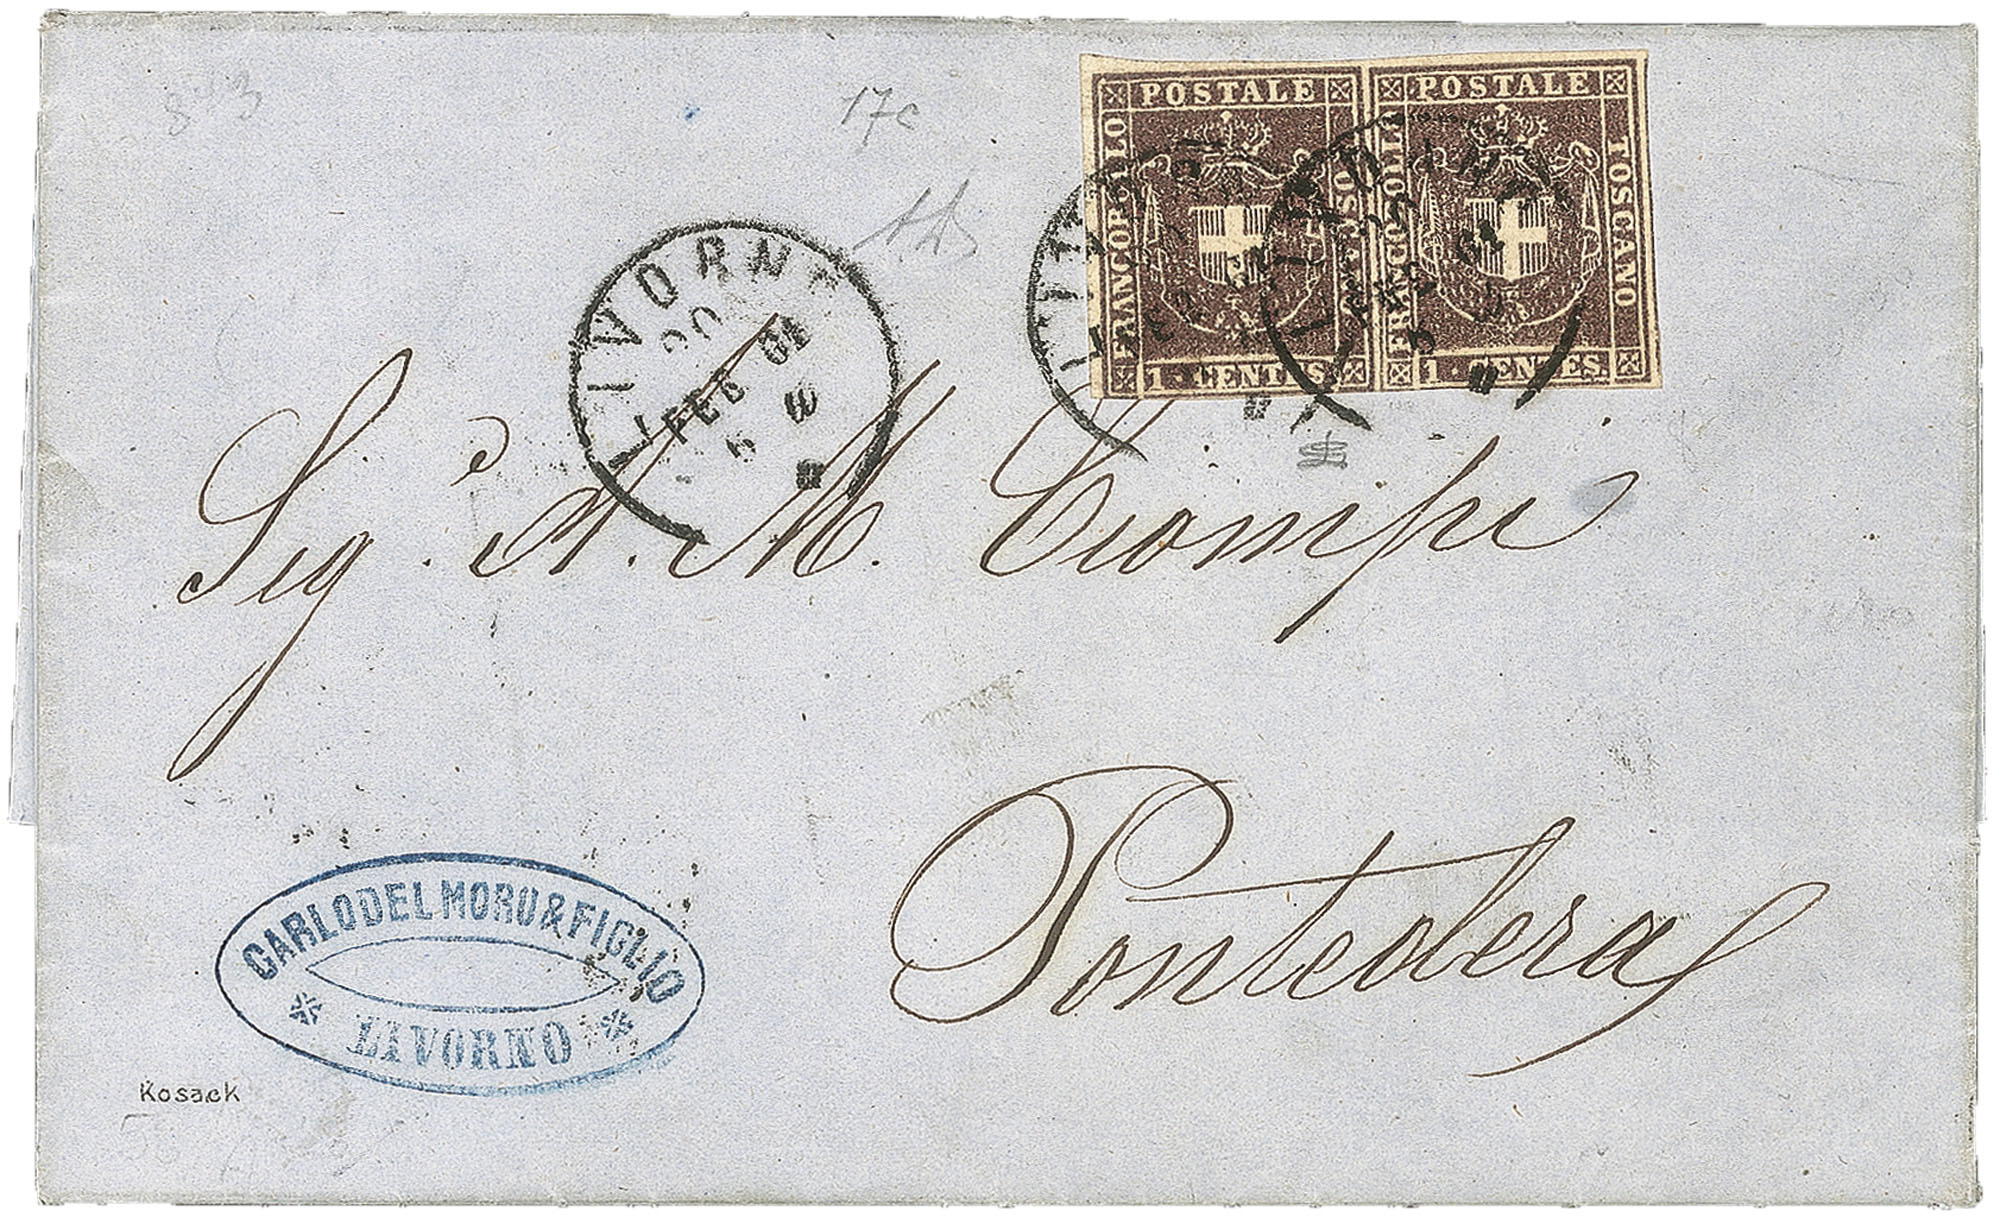 17c
FRANCOBOLLO POSTALE TOSCANO
1 CENTES.
FRANCOBOLLO POSTALE TOSCANO
1 CENTES.
LIVORNO
20
FEB 61
6 M
Sig.e A. M. Ciompi
Pontedera
CARLO DEL MORO & FIGLIO
LIVORNO
Kosack